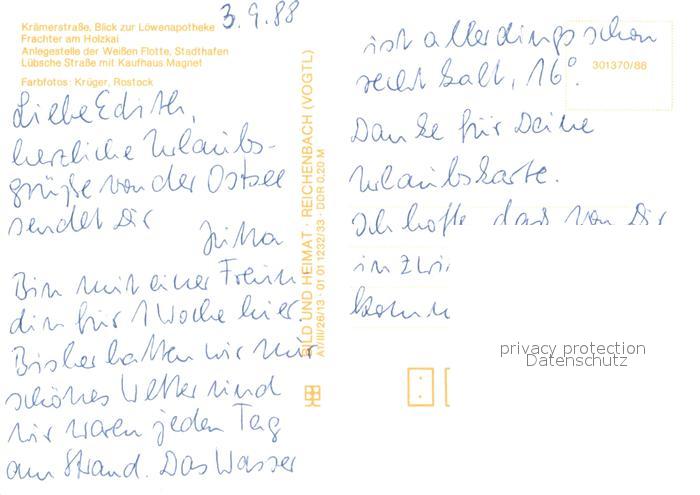 3.9.88
Krämerstraße, Blick zur Löwenapotheke
Frachter am Holzkai
Anlegestelle der Weißen Flotte, Stadthafen
Lübsche Straße mit Kaufhaus Magnet
Farbfotos: Krüger, Rostock
Liebe Edith,
herzliche Urlaubs-
grüße von der Ostsee
sendet Dir
Jutta
Bin mit einer Freun
din für 1 Woche hier.
Bisher hatten wir nur
schönes Wetter und
wir waren jeden Tag
am Strand. Das Wasser
BILD UND HEIMAT · REICHENBACH (VOGTL)
A1/III/26/13 · 01 01 1232/33 · DDR 0,20 M
ist allerdings schon
recht kalt, 16°.
301370/86
Danke für Deine
Urlaubskarte.
Ich hoffe, dass von Dir
in
privacy protection
Datenschutz